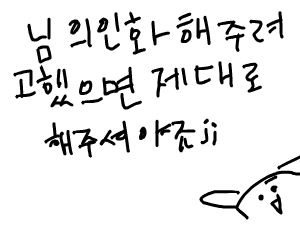 님 의인화 해주려
고했으면 제대로
해주셔야죠jj